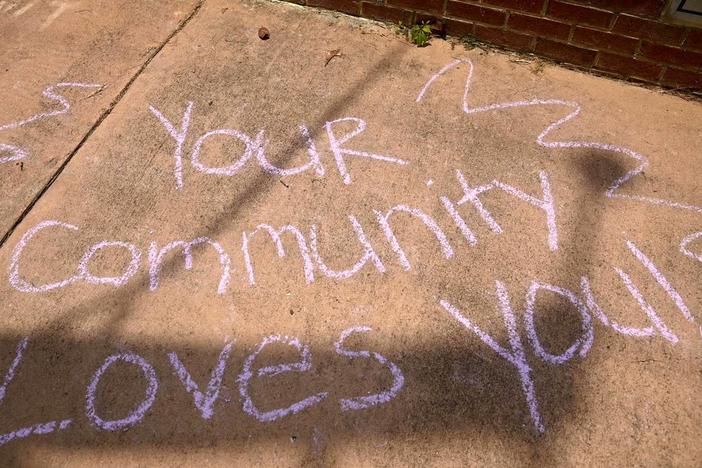 Your
Community
Loves You!!